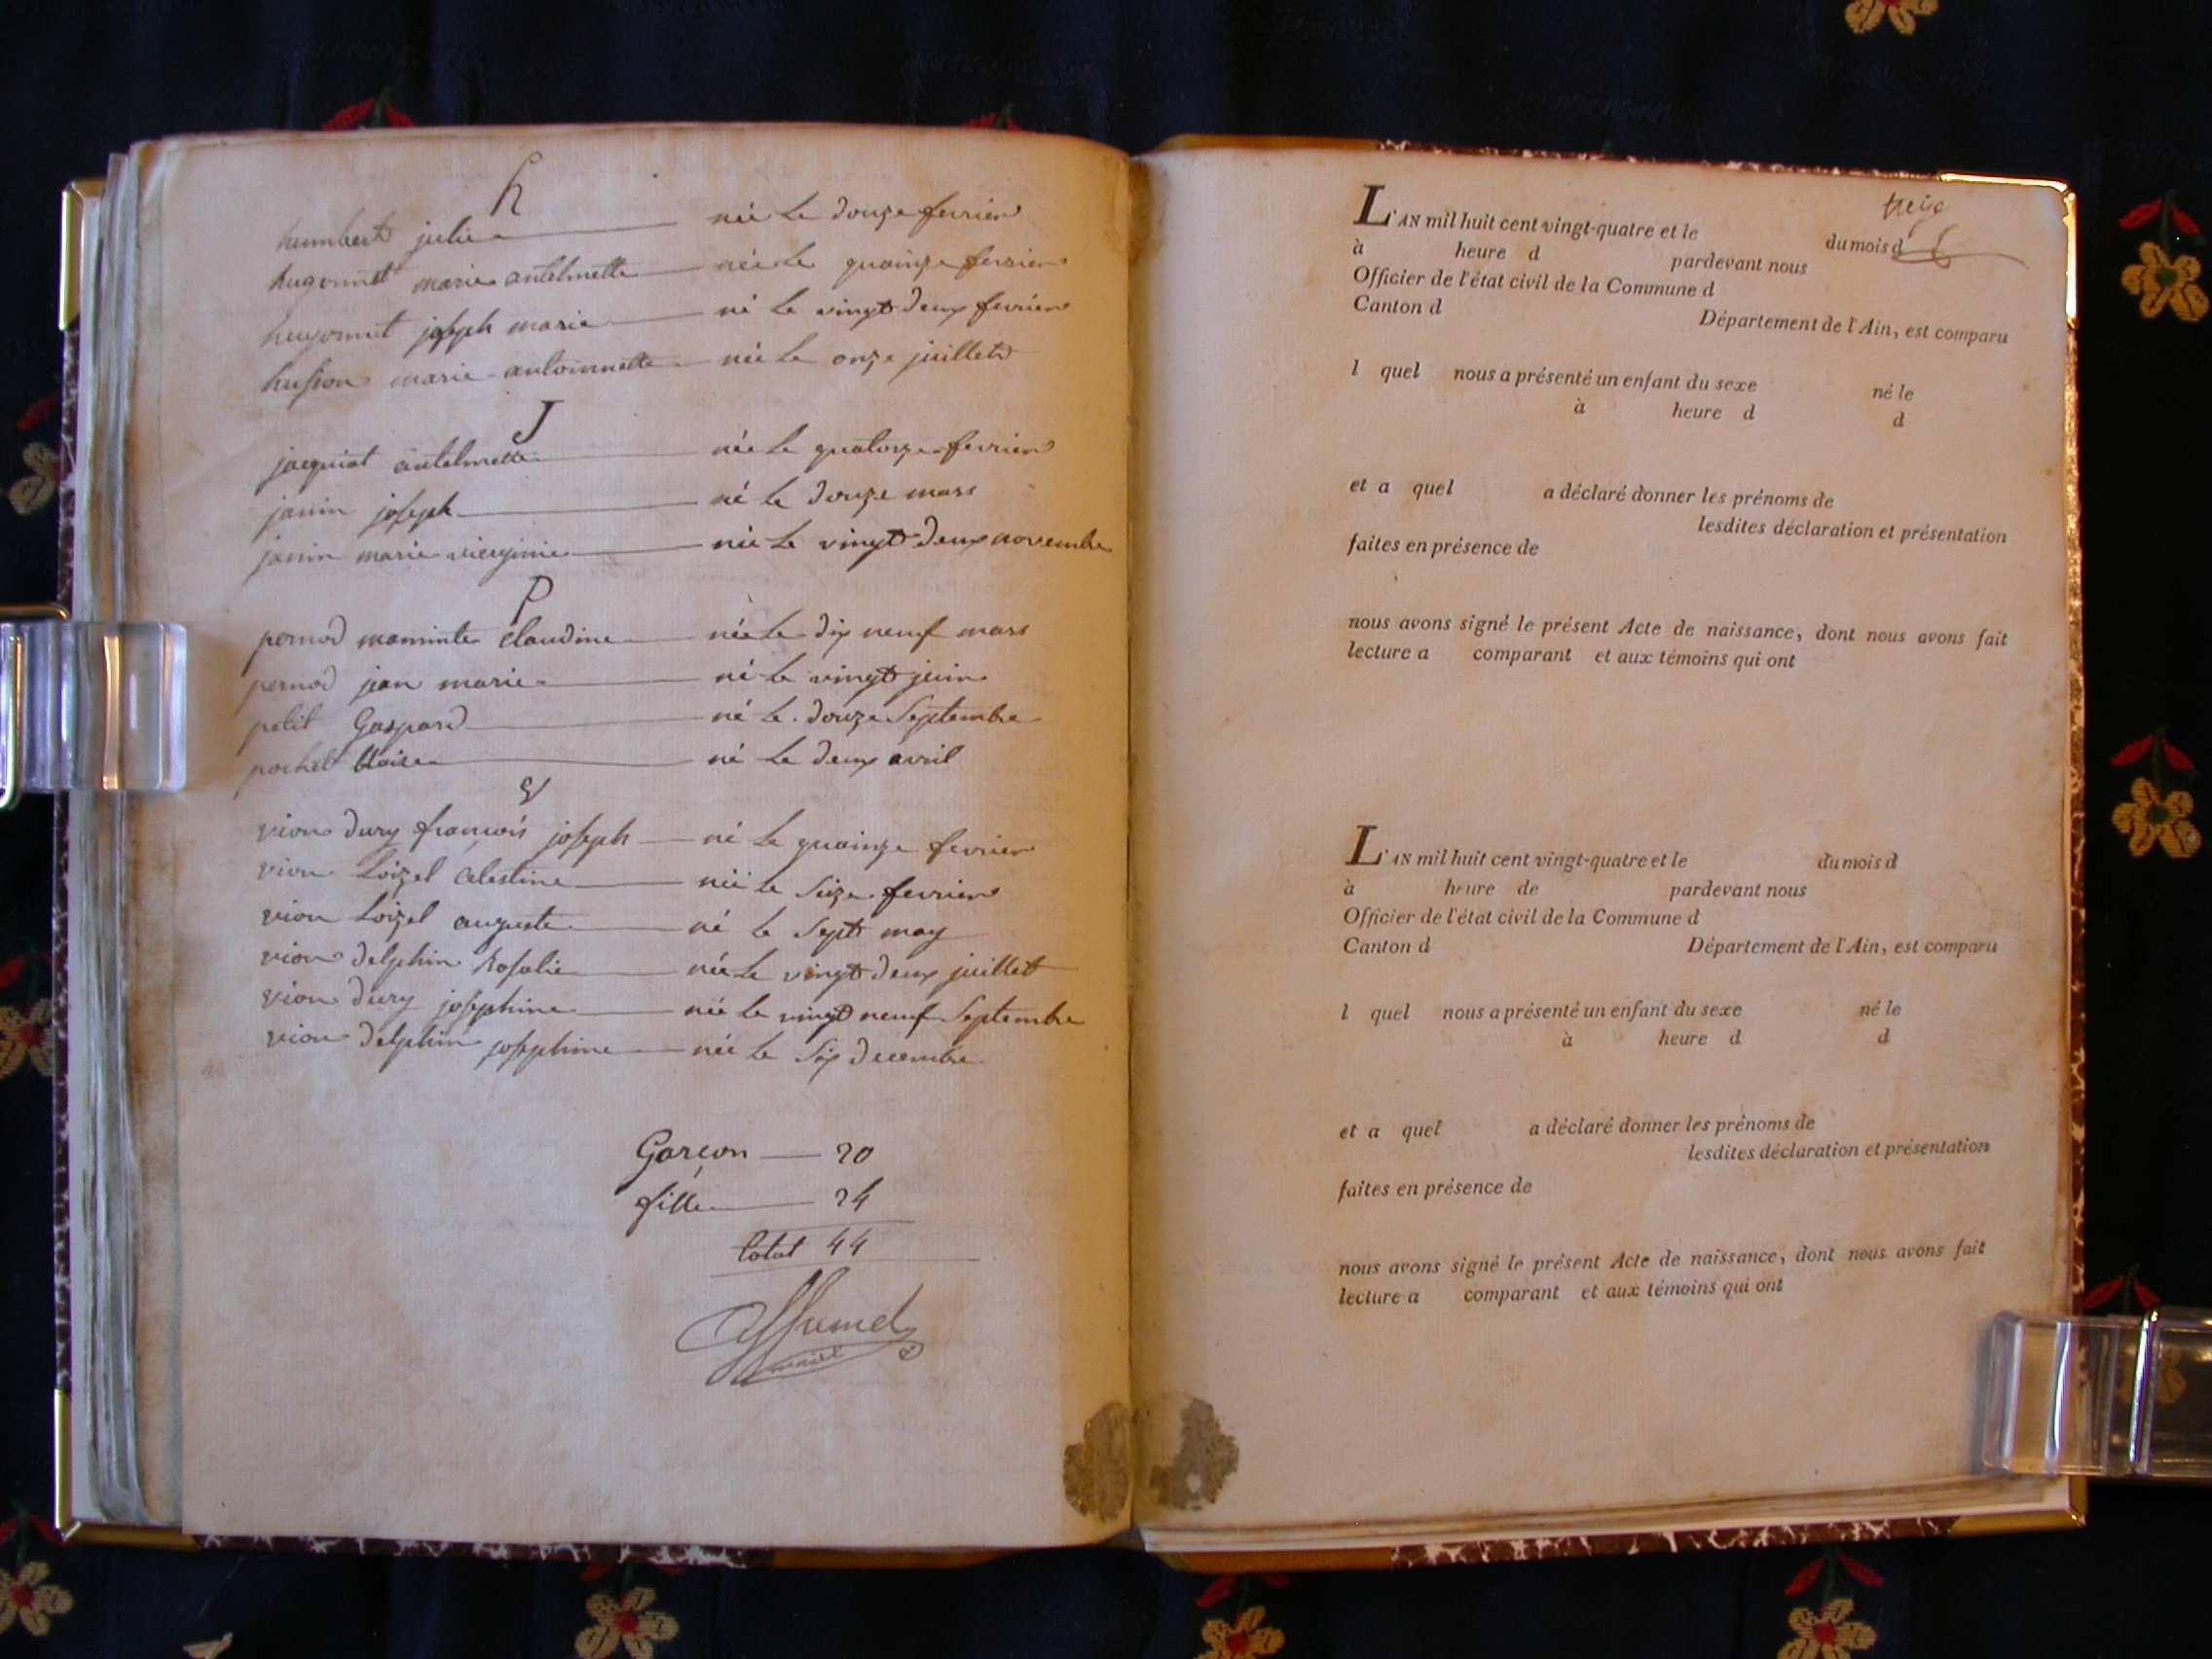 h
humbert julie née le douze fevrier
hugonnet marie antelmette née le quainze fevrier
hugonnet joseph marie né le vingt deux fevrier
husson marie antoinnette née le onze juillet
J
jacquiot antelmette née le quatorze fevrier
janin joseph né le douze mars
janin marie vierginie née le vingt deux novembre
P
pernod claudine née le dix neuf mars
pernod jean marie né le vingt juin
petit Gaspard né le douze Septembre
pochet blaise né le deux avril
V
vion dury françois joseph né le quainze fevrier
vion Loizel Celestine née le Seize fevrier
vion Loizel auguste né le Sept may
vion delphin Rosalie née le vingt deux juillet
vion dury josephine née le vingt neuf Septembre
vion delphin josephine née le Six decembre
Garçon 20
fille 24
total 44
maire
treize
L'AN mil huit cent vingt-quatre et le du mois d
à heure d pardevant nous
Officier de l'état civil de la Commune d
Canton d Département de l'Ain, est comparu
l quel nous a présenté un enfant du sexe né le
à heure d d
et a quel a déclaré donner les prénoms de
lesdites déclaration et présentation
faites en présence de
nous avons signé le présent Acte de naissance, dont nous avons fait
lecture a comparant et aux témoins qui ont
L'AN mil huit cent vingt-quatre et le du mois d
à heure de pardevant nous
Officier de l'état civil de la Commune d
Canton d Département de l'Ain, est comparu
l quel nous a présenté un enfant du sexe né le
à heure d d
et a quel a déclaré donner les prénoms de
lesdites déclaration et présentation
faites en présence de
nous avons signé le présent Acte de naissance, dont nous avons fait
lecture a comparant et aux témoins qui ont